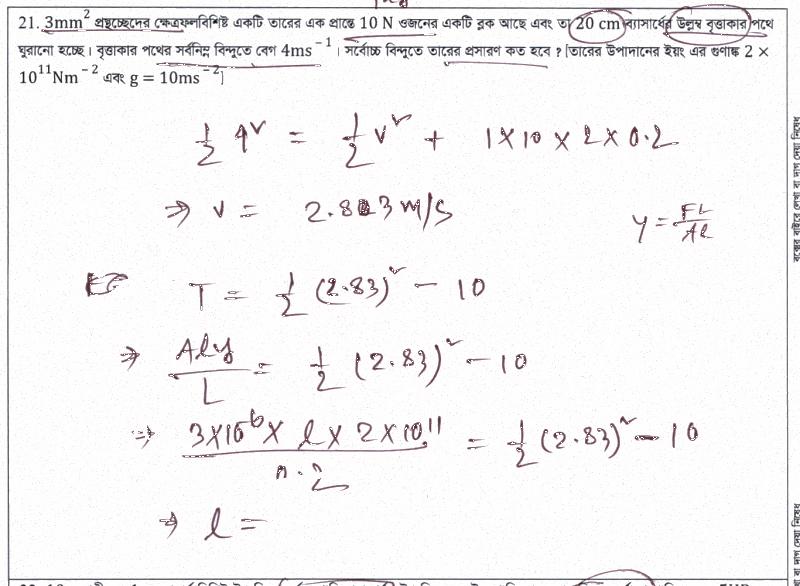 21. 3mm² প্রস্থচ্ছেদের ক্ষেত্রফলবিশিষ্ট একটি তারের এক প্রান্তে 10 N ওজনের একটি ব্লক আছে এবং তা 20 cm ব্যাসার্ধের উল্লম্ব বৃত্তাকার পথে
ঘুরানো হচ্ছে। বৃত্তাকার পথের সর্বনিম্ন বিন্দুতে বেগ 4ms⁻¹। সর্বোচ্চ বিন্দুতে তারের প্রসারণ কত হবে? [তারের উপাদানের ইয়ং এর গুণাঙ্ক 2 ×
10¹¹Nm⁻² এবং g = 10ms⁻²]
½ 4² = ½ v² + 1×10×2×0.2
⇒ v = 2.83 m/s
Y = FL/Al
T = ½ (2.83)² − 10
⇒ AlY/L = ½ (2.83)² − 10
⇒ 3×10⁻⁶ × l × 2×10¹¹ / 0.2 = ½ (2.83)² − 10
⇒ l =